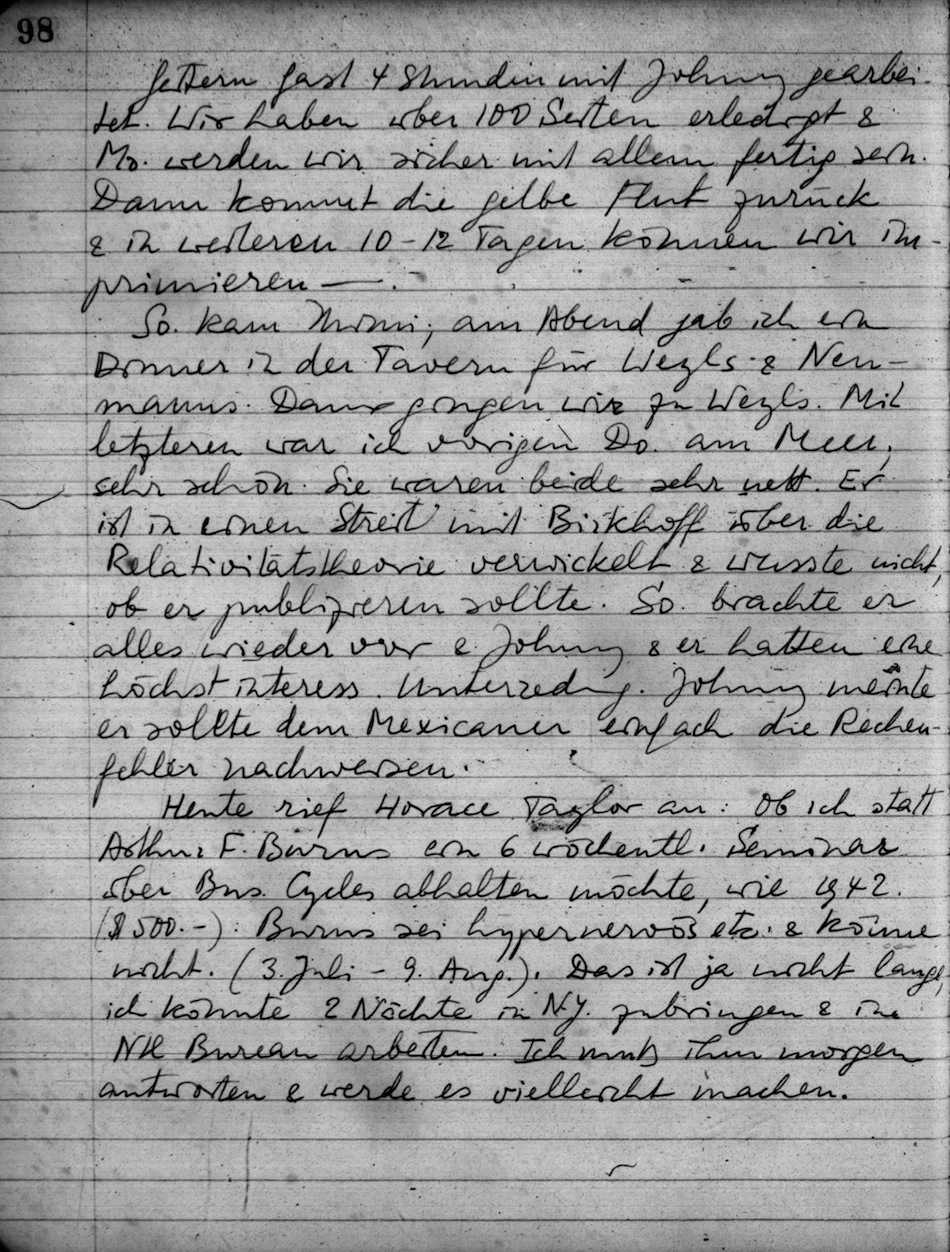 98
Gestern fast 4 Stunden mit Johnny gearbei-
tet. Wir haben über 100 Seiten erledigt &
Mo. werden wir sicher mit allem fertig sein.
Dann kommt die gelbe Flut zurück
& in weiteren 10-12 Tagen können wir im-
primieren —.
So. kam Mimi; am Abend gab ich ein
Dinner in der Tavern für Weyls & Neu-
manns. Dann gingen wir zu Weyls. Mit
letzteren war ich vorigen Do. am Meer;
sehr schön. Sie waren beide sehr nett. Er
ist in einen Streit mit Birkhoff über die
Relativitätstheorie verwickelt & wusste nicht,
ob er publizieren sollte. So. brachte er
alles wieder vor & Johnny & er hatten eine
höchst interess. Unterredung. Johnny meinte
er sollte dem Mexicaner einfach die Rechen-
fehler nachweisen.
Heute rief Horace Taylor an: Ob ich statt
Arthur F. Burns ein 6 wöchentl. Seminar
über Bus. Cycles abhalten möchte, wie 1942.
($500.-): Burns sei hypernervös etc. & könne
nicht. (3. Juli - 9. Aug.). Das ist ja nicht lang,
ich könnte 2 Nächte in N.Y. zubringen & im
Bureau arbeiten. Ich muß ihm morgen
antworten & werde es vielleicht machen.